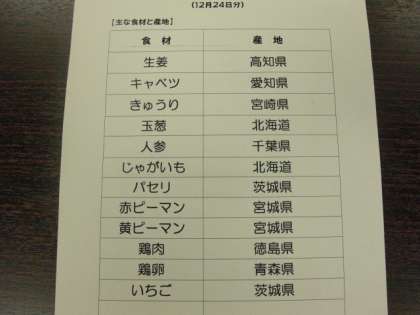 (12月24日分)
【主な食材と産地】
食材 産地
生姜 高知県
キャベツ 愛知県
きゅうり 宮崎県
玉葱 北海道
人参 千葉県
じゃがいも 北海道
パセリ 茨城県
赤ピーマン 宮城県
黄ピーマン 宮城県
鶏肉 徳島県
鶏卵 青森県
いちご 茨城県